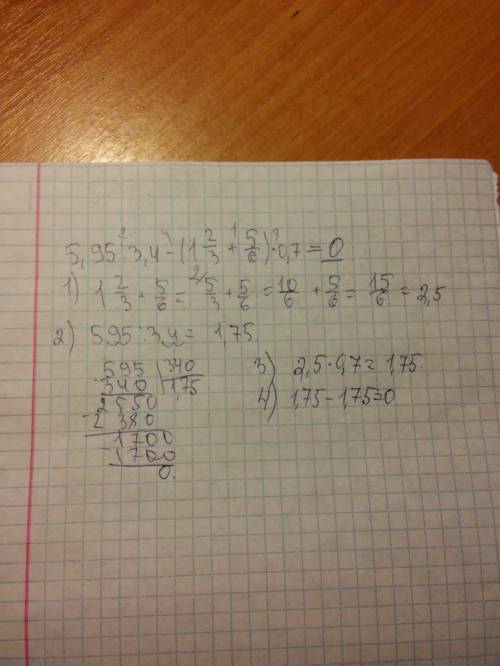 5,95 : 3,4 - (1 2/3 + 5/6) · 0,7 = 0
1) 1 2/3 + 5/6 = 5/3 + 5/6 = 10/6 + 5/6 = 15/6 = 2,5
2) 5,95 : 3,4 = 1,75
595 | 340
- 340 | 1,75
2550
- 2380
1700
- 1700
0.
3) 2,5 · 0,7 = 1,75
4) 1,75 - 1,75 = 0